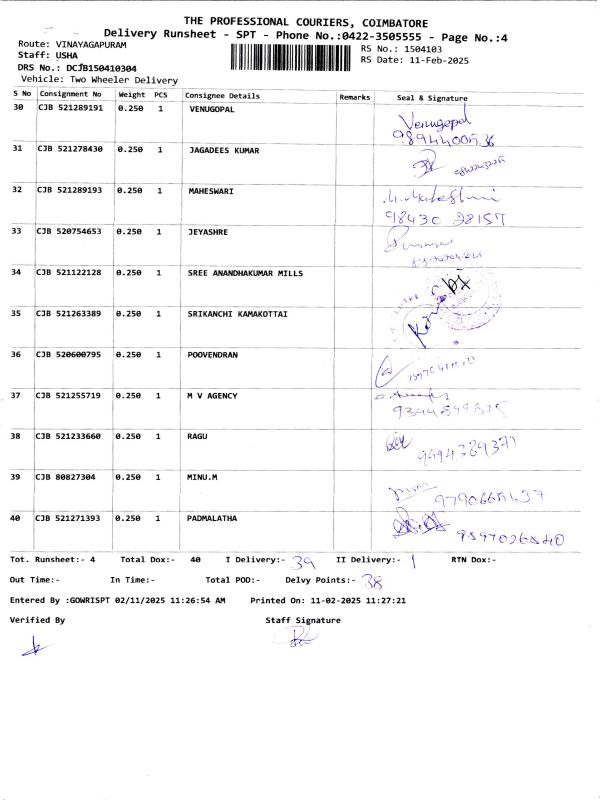 THE PROFESSIONAL COURIERS, COIMBATORE
Delivery Runsheet - SPT - Phone No.:0422-3505555 - Page No.:4
Route: VINAYAGAPURAM
RS No.: 1504103
Staff: USHA
RS Date: 11-Feb-2025
DRS No.: DCJB150410304
Vehicle: Two Wheeler Delivery
S No Consignment No Weight PCS Consignee Details Remarks Seal & Signature
30 CJB 521289191 0.250 1 VENUGOPAL Venugopal
31 CJB 521278430 0.250 1 JAGADEES KUMAR
32 CJB 521289193 0.250 1 MAHESWARI
98430 28157
33 CJB 520754653 0.250 1 JEYASHRE
34 CJB 521122128 0.250 1 SREE ANANDHAKUMAR MILLS
35 CJB 521263389 0.250 1 SRIKANCHI KAMAKOTTAI
36 CJB 520600795 0.250 1 POOVENDRAN
37 CJB 521255719 0.250 1 M V AGENCY
38 CJB 521233660 0.250 1 RAGU
39 CJB 80827304 0.250 1 MINU.M
40 CJB 521271393 0.250 1 PADMALATHA
Tot. Runsheet:- 4 Total Dox:- 40 I Delivery:- 39 II Delivery:- 1 RTN Dox:-
Out Time:- In Time:- Total POD:- Delvy Points:- 38
Entered By :GOWRISPT 02/11/2025 11:26:54 AM Printed On: 11-02-2025 11:27:21
Verified By Staff Signature